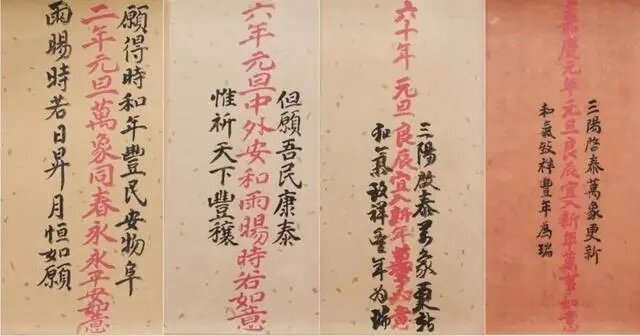 願得時和年豐民安物阜
二年元旦萬象同春永永平安如意
雨暘時若日昇月恒如願
但願吾民康泰
六年元旦中外安和雨暘時若如意
惟祈天下豐穰
三陽啟泰萬象更新
六十年元旦良辰宜入新年萬事如意
和氣致祥豐年為瑞
三陽啓泰萬象更新
嘉慶元年元旦良辰宜入新年萬事如意
和氣致祥豐年為瑞